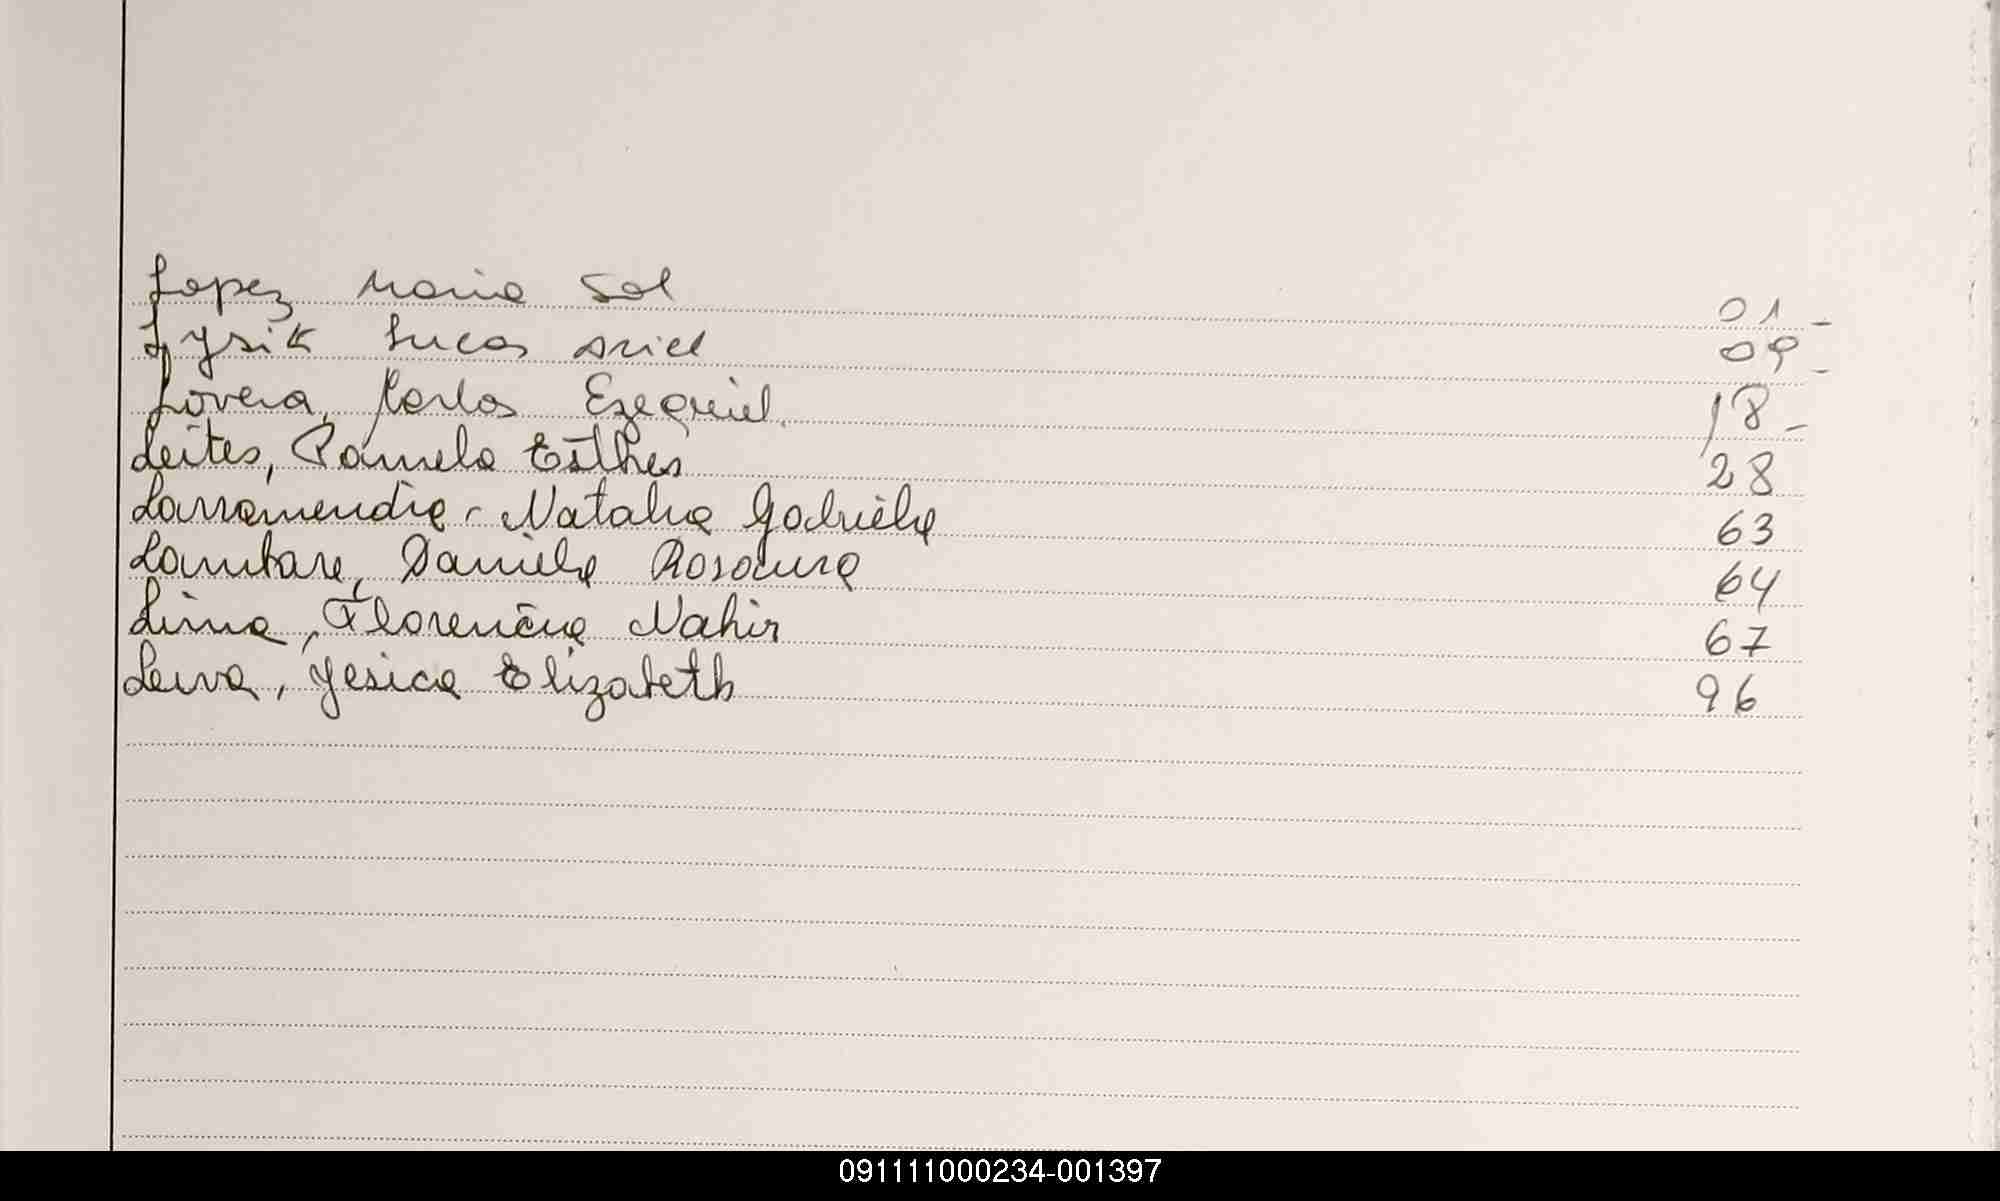 Lopez Maria Sol 01-
Lysik Lucas Ariel 09-
Lovera, Carlos Ezequiel. 18-
Leites, Pamela Esther 28
Larramendia - Natalia Gabriela 63
Lambare, Daniela Rosaura 64
Lima, Florencia Nahir 67
Leiva, Yesica Elizabeth 96
091111000234-001397